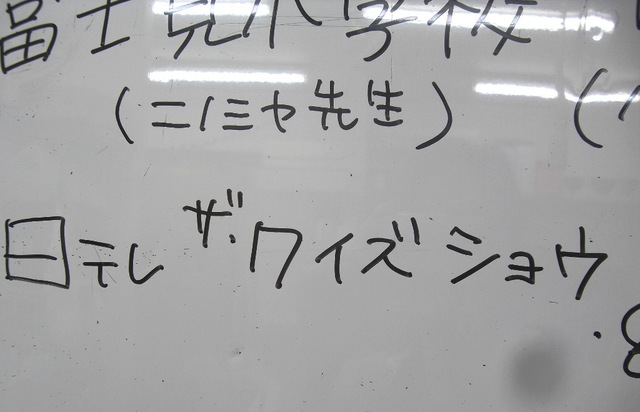 富士見小学校
(ニノミヤ先生) (
日テレ ザ・ワイズショウ
・8